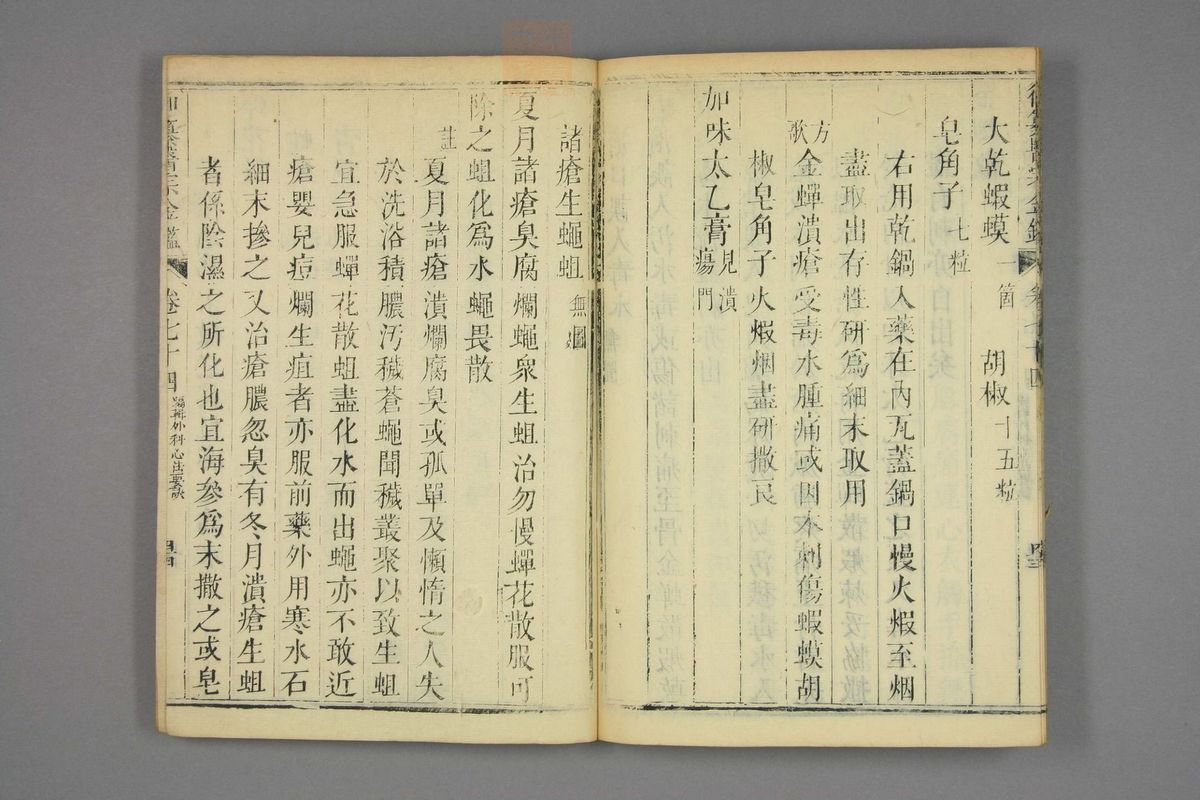 大乾蝦蟆一箇　胡椒十五粒
皂角子七粒
右用乾鍋入藥在內瓦蓋鍋口慢火煆至烟
盡取出存性研爲細末取用
方歌金蟬潰瘡受毒水腫痛或因木刺傷蝦蟆胡
椒皂角子火煆烟盡研撒良
加味太乙膏見潰瘍門
諸瘡生蠅蛆無圖
夏月諸瘡臭腐爛蠅衆生蛆治勿慢蟬花散服可
除之蛆化爲水蠅畏散
註夏月諸瘡潰爛腐臭或孤單及懶惰之人失
於洗浴積膿汚穢蒼蠅聞穢叢聚以致生蛆
宜急服蟬花散蛆盡化水而出蠅亦不敢近
瘡嬰兒痘爛生疽者亦服前藥外用寒水石
細末摻之又治瘡膿忽臭有冬月潰瘡生蛆
者係陰濕之所化也宜海參爲末撒之或皂
金鑑
卷七十四
編輯外科心法要訣